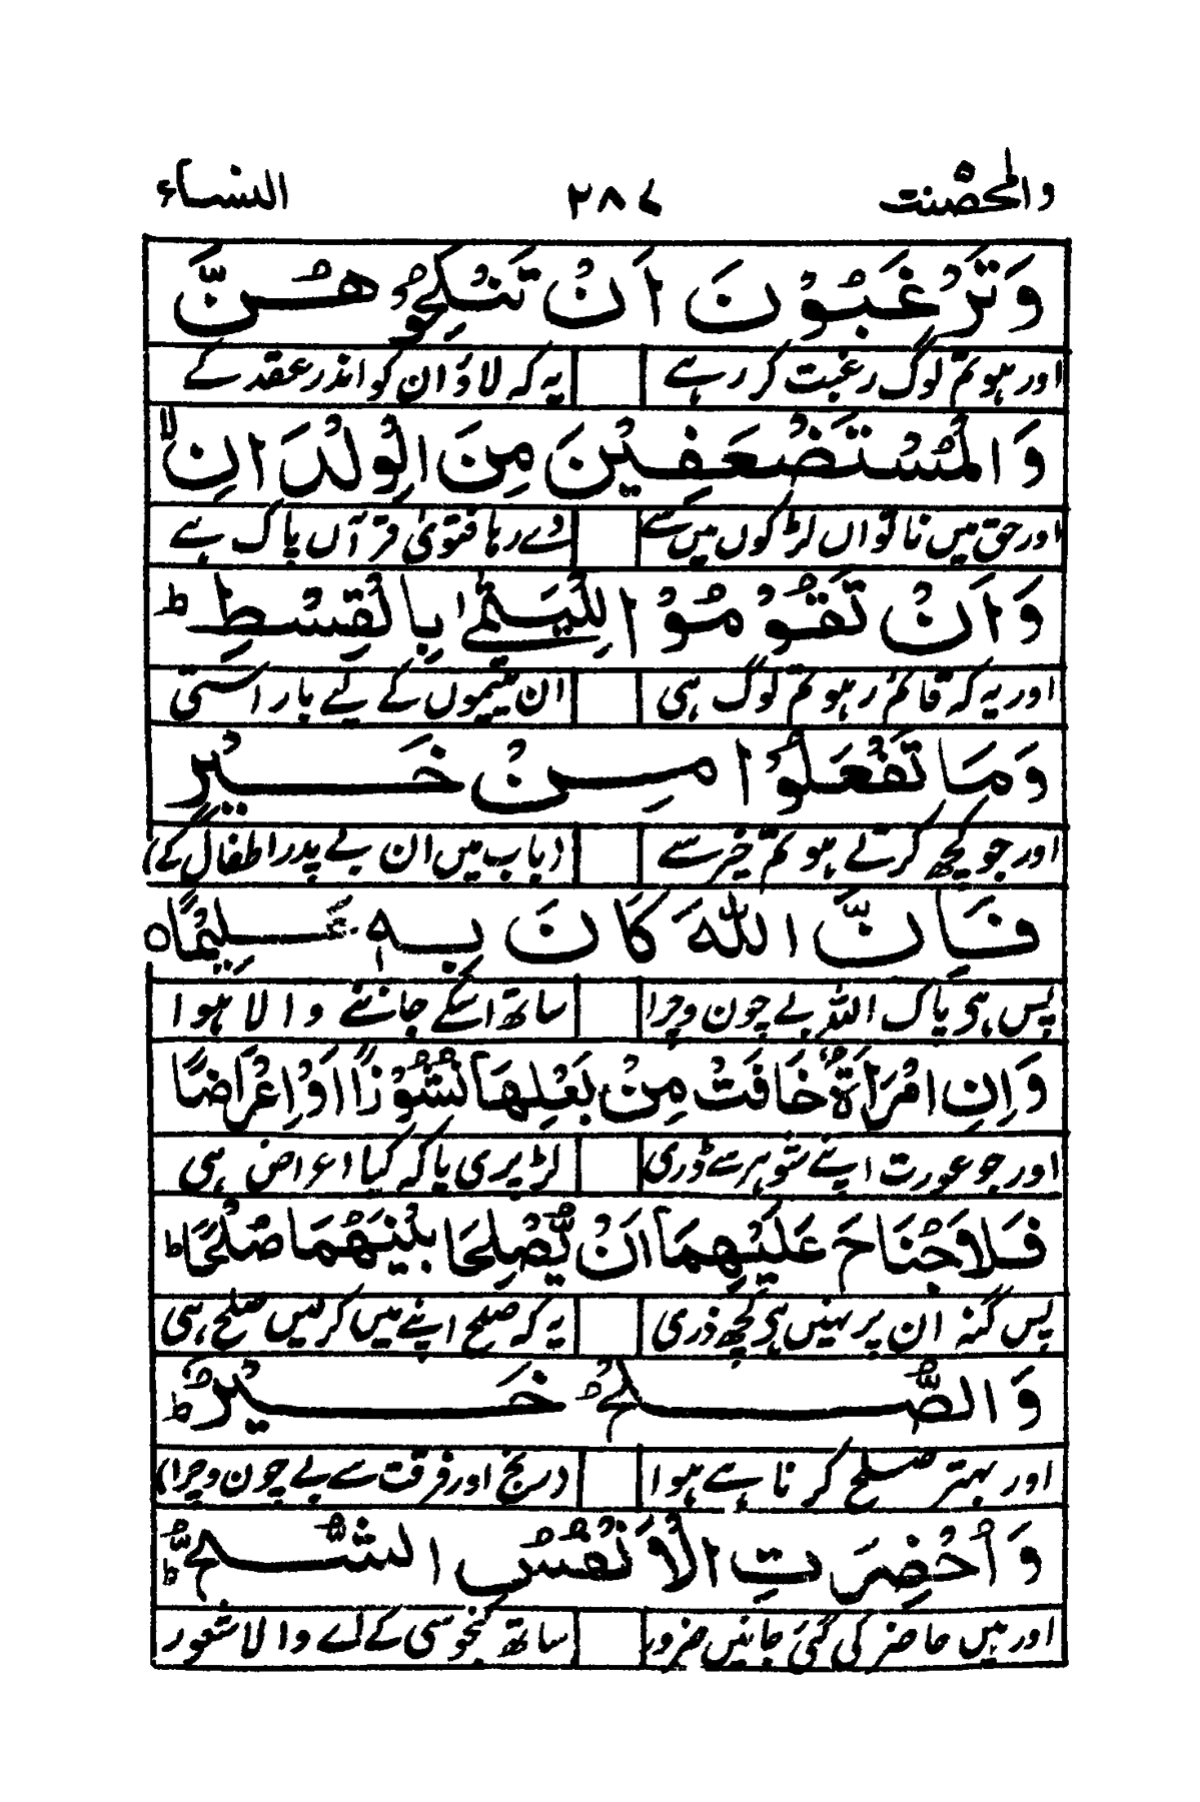 والمحصنت ۲۸۷ النساء
وَتَرْغَبُوْنَ اَنْ تَنْكِحُوْهُنَّ
اور ہو تم لوگ رغبت کر رہے یہ کہ لاؤ ان کو اندر عقد کے
وَالْمُسْتَضْعَفِيْنَ مِنَ الْوِلْدَانِ ۙ
اور حق میں ناتواں لڑکوں میں سے دے رہا فتویٰ قرآں پاک ہے
وَاَنْ تَقُوْمُوْا لِلْيَتٰمٰى بِالْقِسْطِ ؕ
اور یہ کہ قائم رہو تم لوگ ہی ان یتیموں کے لیے بار استی
وَمَا تَفْعَلُوْا مِنْ خَيْرٍ
اور جو کچھ کرتے ہو تم خیر سے (باب میں ان بے پدر اطفال کے)
فَاِنَّ اللّٰهَ كَانَ بِهٖ عَلِيْمًا ○
پس ہی پاک اللہ بے چون وچرا ساتھ اسکے جاننے والا ہوا
وَاِنِ امْرَاَةٌ خَافَتْ مِنْۢ بَعْلِهَا نُشُوْزًا اَوْ اِعْرَاضًا
اور جو عورت اپنے شوہر سے ڈری لڑ پڑی یا کہ کیا اعراض ہی
فَلَا جُنَاحَ عَلَيْهِمَآ اَنْ يُّصْلِحَا بَيْنَهُمَا صُلْحًا ؕ
پس گنہ ان پر نہیں ہی کچھ ذری یہ کہ صلح اپنے میں کر لیں صلح ہی
وَالصُّلْحُ خَيْرٌ ؕ
اور بہتر صلح کرنا ہے ہوا (رنج اور فرقت سے بے چون وچرا)
وَاُحْضِرَتِ الْاَنْفُسُ الشُّحَّ ؕ
اور ہیں حاضر کی گئی جانیں ضرور ساتھ کنجوسی کے اے والا شعور